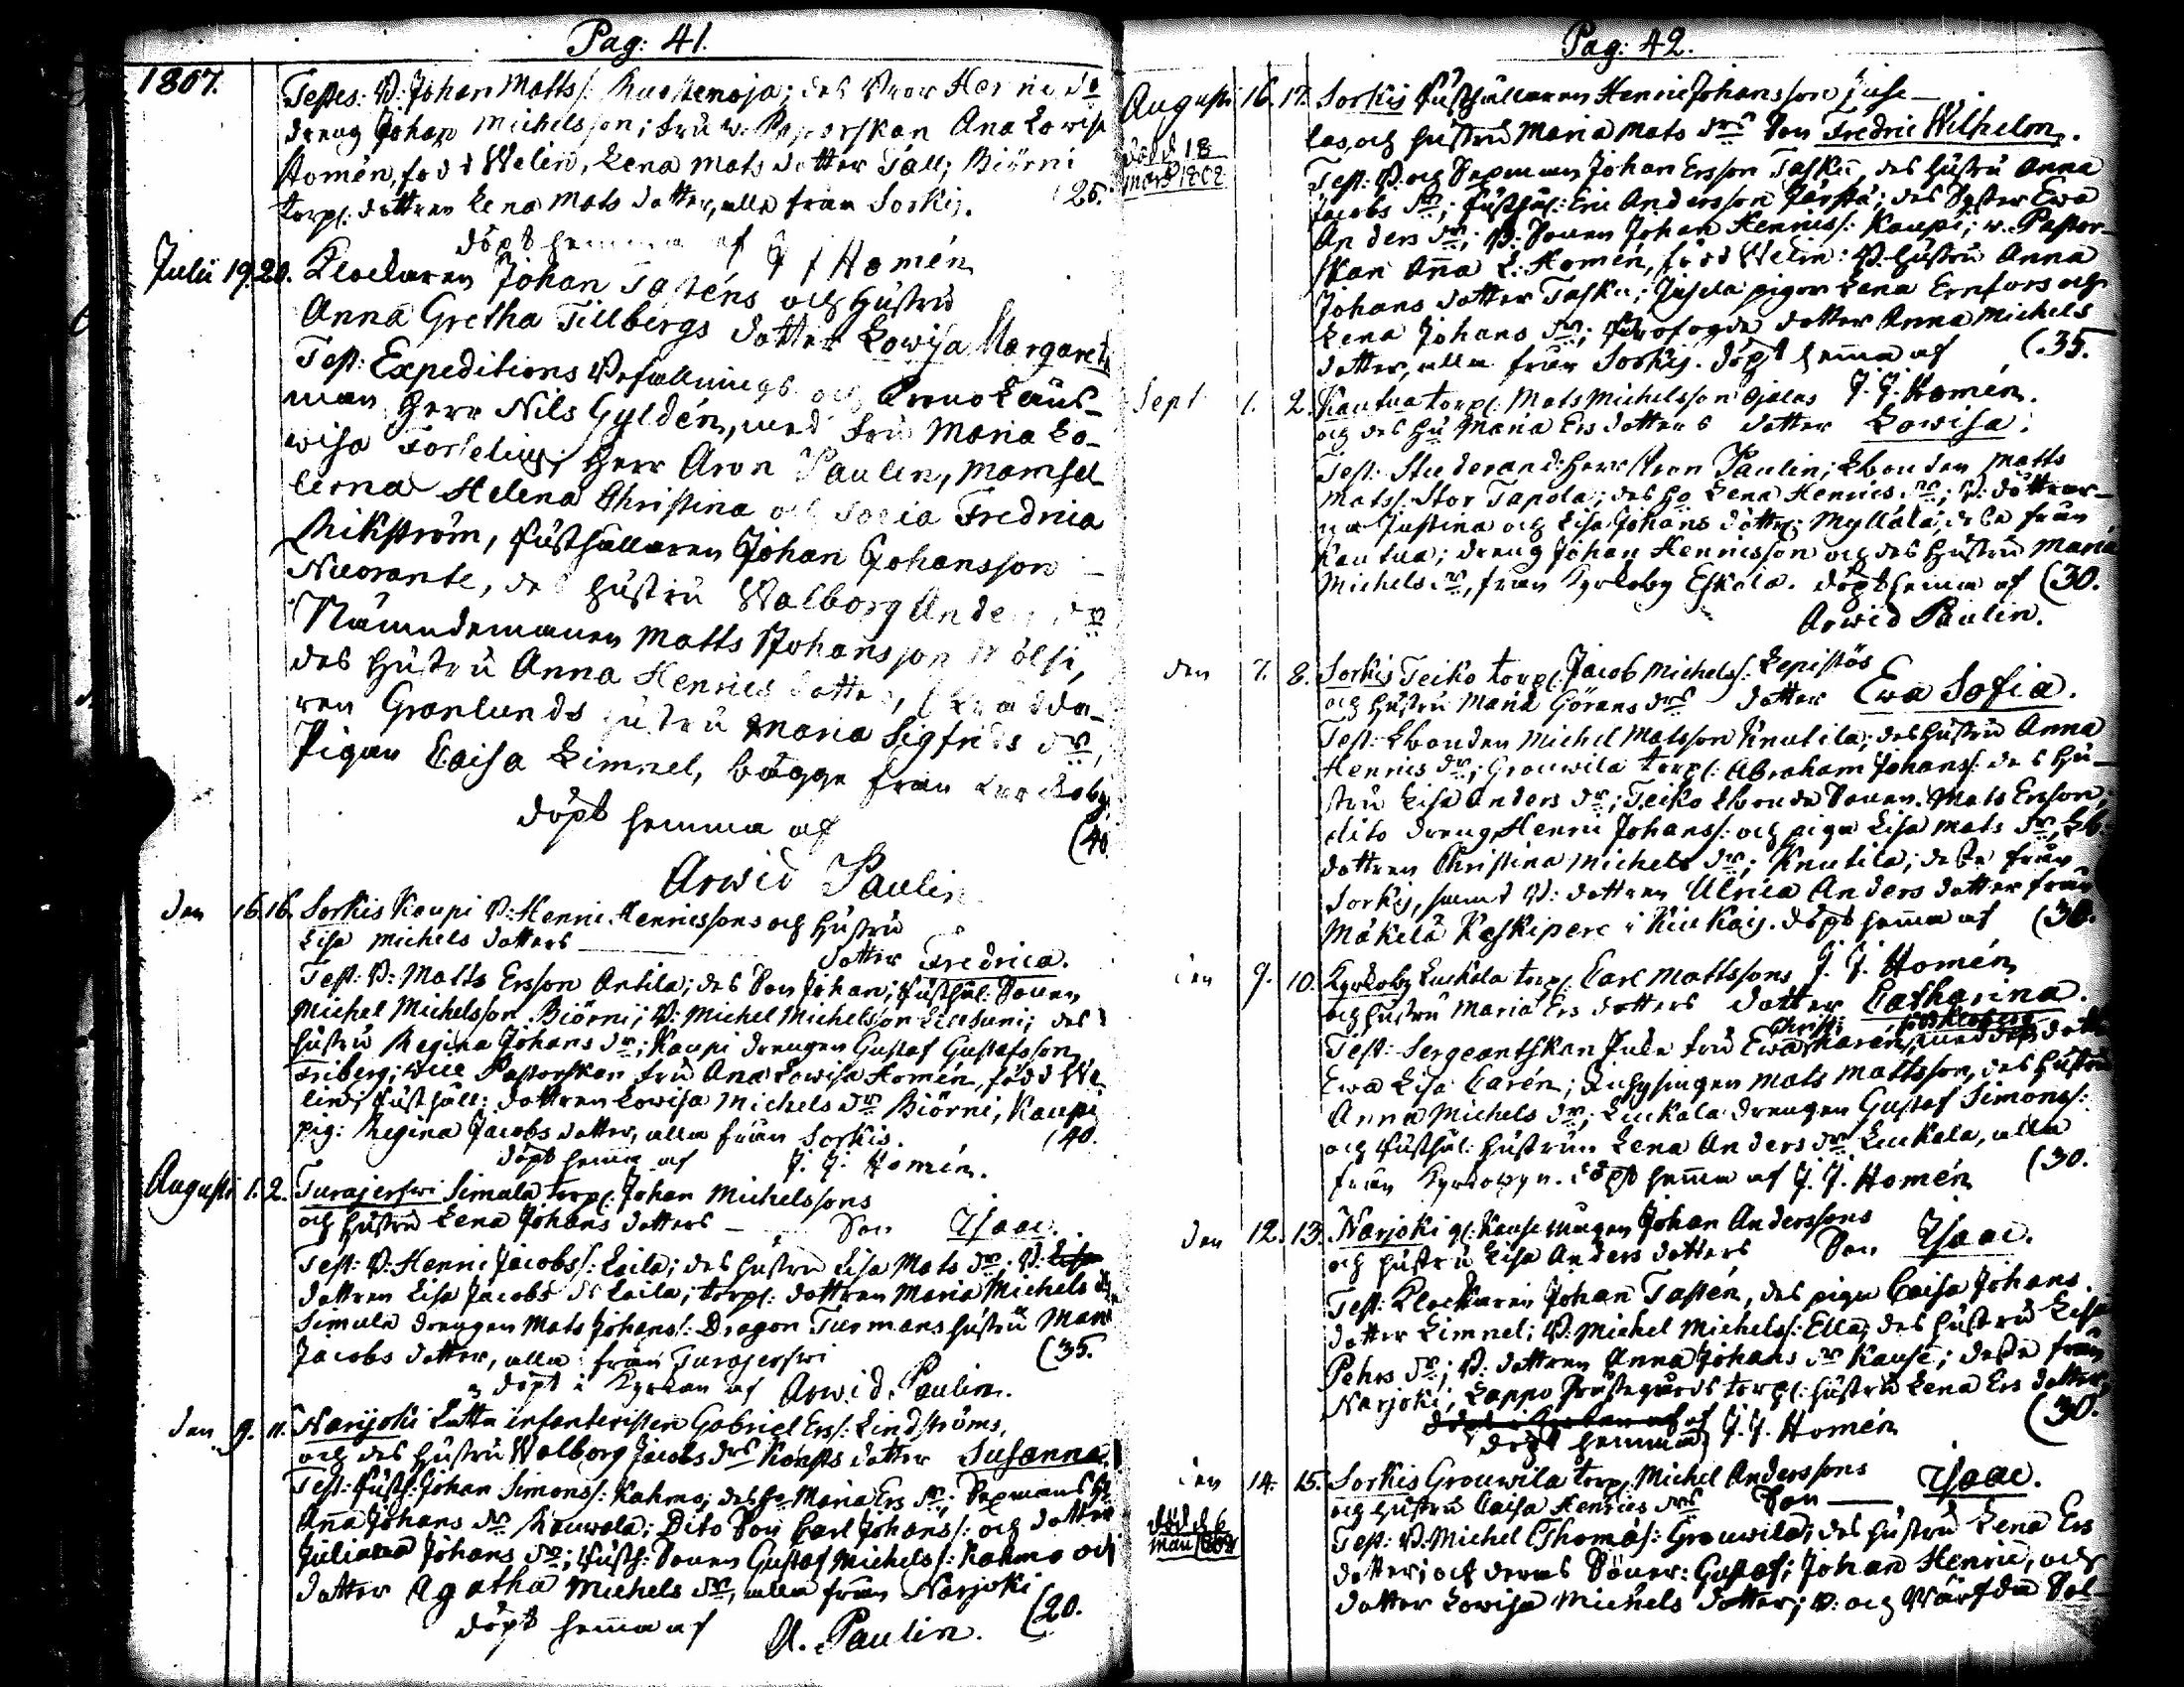 Pag: 41.
1807.
Testes: B: Johan Matts/: Ruostenoja; des Broor Henric
dreng Johan Michelsson; fru v. Pastorskan Ana Lowisa
Homén, född Welin, Lena Mats dotter Tall; Biörni
torp/: dottren Lena Mats dotter, alla från Sorkis. (26.
döpt hemma af J J Homén
Julii 19. 20. Klockaren Johan Tasténs och hustru
Anna Gretha Tillbergs dotter Lowisa Margareta
Test: Expeditions Befallnings och Crono Läns-
man Herr Nils Gyldén, med fru Maria Lo-
wisa Forselius; Herr Aron Paulin, Mamsel
lerna Helena Christina och Sofia Fredrica
Wikström, Rusthållaren Johan Johansson
Nuorante, des hustru Walborg Anders dr
Nämndemannen Matts Johansson
des hustru Anna Henrics dotter,
ren Grönlunds hustru Maria Sigfrids dr,
Pigan Caisa Limnel, bägge från Kyrckoby,
döpt hemma af (40.
Arwid Paulin
den 16. 16. Sorkis Kaupi B: Henric Henricssons och hustru
Lisa Michels dotters
dotter Fredrica.
Test: B: Matts Ersson Antila; des Son Johan; Rusthål: Sonen
Michel Michelsson Biörni; B: Michel Michelsson Lillsuni; des
hustru Regina Johans dr; Kaupi drengen Gustaf Gustafsson
Friberg; Vice Pastorskan fru Ana Lowisa Homén, född We
lin; Rusthåll: dottren Lowisa Michels dr Biörni, Kaupi
pig: Regina Jacobs dotter, alla från Sorkis. (40.
döpt hemma af J. J. Homén.
Augusti 1. 2. Turajerfwi Simula torp/: Johan Michelssons
och hustru Lena Johans dotters – Son Isaac.
Test: B: Henric Jacobs/: Laila; des hustru Lisa Mats dr. B: Lisa
dottren Lisa Jacobs dr Laila; torp/: dottren Maria Michels dr
Simula drengen Mats Johans/: Dragon Turmans hustru Maria
Jacobs dotter, alla från Turajerfwi (35.
döpt i Kyrkan af Arwid Paulin.
den 9. 11. Narijoki Lutta infanteristen Gabriel Ers/: Lindströms,
och des hustru Walborg Jacobs drs Kånsts dotter Susanna.
Test: Rusth: Johan Simons/: Kahmo; des ho Maria Ers dr; Sexmans ho
Anna Johans dr Kauwola; Dito Son Carl Johans/: och dotter
Juliana Johans dr; Rusth: Sonen Gustaf Michels/: Kahmo och
dotter Agatha Michels dr, alla från Narjoki
döpt hemma af A. Paulin. (20.
Pag: 42.
Augusti 16. 17. Sorkis Rusthållaren Henric Johansson Juse-
las, och hustru Maria Mats drs Son Fredric Wilhelm.
död d 18
Mars 1808
Test: B: och Sexman Johan Ersson Tasku, des hustru Anna
Jacobs dr; Rusthål: Eric Andersson Perttu; des Syster Ewa
Anders dr; B: Sonen Johan Henrics/: Kaupi; v. Pastor-
skan Anna L: Homén, född Welin: B: hustru Anna
Johans dotter Tasku; Jusela pigor Lena Ernfors och
Lena Johans dr; Profogde dotter Anna Michels
dotter, alla från Sorkis. döpt hemma af (35.
J. J. Homén.
Sept 1. 2. Kautua torp/: Mats Michelsson Ojalas
och des hu Maria Ers dotters dotter Lowisa.
Test: Studerand: Herr Aron Paulin; Lbonden Matts
Mats/: Stor Tapola; des ho Lena Henrics dr; B: döttrar-
na Justina och Lisa Johans döttr: Myllälä; desse från
Kautua; dreng Johan Henricsson och des hustru Maria
Michels dr, från Kyrkoby Eskola. döpt hemma af (30.
Arwid Paulin.
den 7. 8. Sorkis Teiko torp/: Jacob Michels/: Lepistös
och hustru Maria Görans drs dotter Ewa Sofia.
Test: Lbonden Michel Matsson Knutila; des hustru Anna
Henrics dr; Grouwila torp/: Abraham Johans/: des hu-
stru Lisa Anders dr; Teiko Lbonde Sonen Mats Ersson,
dito dreng Henric Johans/: och piga Lisa Mats dr, Lb:
dottren Christina Michels dr; Knutila; desse från
Sorkis, samt B: dottren Ulrica Anders dotter från
Mäkelä Keskipere i Kiukais. döpt hemma af (30.
J. J. Homén
den 9. 10. Kyrkoby Luckala torp/: Carl Mattssons
och hustru Maria Ers dotters dotter Catharina.
Test: Sergeantskan Fru Ewa Christ: Karén, född med des dotter
Ewa Lisa Carén; Inhysingen Mats Mattsson, des hustru
Anna Michels dr; Luckala drengen Gustaf Simons/:
och Rusthål: hustrun Lena Anders dr Luckala, alla
från Kyrkobyn. döpt hemma af J. J. Homén (30.
den 12. 13. Narjoki gl: Kause mågen Johan Anderssons
och hustru Lisa Anders dotters Son Isaac.
Test: Klockaren Johan Tastén, des piga Caisa Johans
dotter Limnel; B: Michel Michels/: Ella; des hustru Lisa
Pehrs dr; B: dottren Anna Johans dr Kause; desse från
Narjoki, Lappo Prustegårds torp/: hustru Lena Ers dotter,
döpt i Kyrkan af (30.
döpt hemma af J. J. Homén
den 14. 15. Sorkis Grouwila torp/: Michel Anderssons
och hustru Caisa Henrics drs Son — Isaac.
död d 6
Maii 1808
Test: B: Michel Thomas/: Grouwila; des hustru Lena Ers
dotter; och deras Söner: Gustaf; Johan Henric, och
dotter Lowisa Michels dotter; B: och Wärfda Sol-